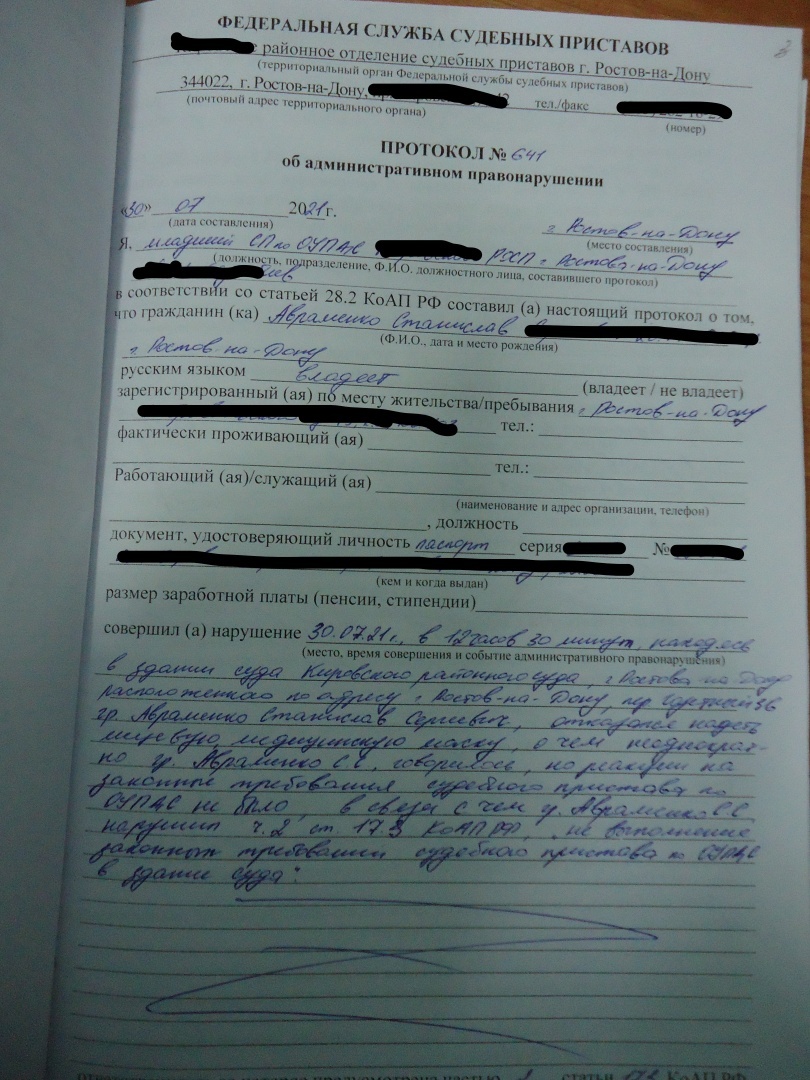 ФЕДЕРАЛЬНАЯ СЛУЖБА СУДЕБНЫХ ПРИСТАВОВ
районное отделение судебных приставов г. Ростов-на-Дону
(территориальный орган Федеральной службы судебных приставов)
344022, г. Ростов-на-Дону, тел./факс
(почтовый адрес территориального органа) (номер)
ПРОТОКОЛ № 641
об административном правонарушении
«30» 07 2021 г. г. Ростов-на-Дону
(дата составления) (место составления)
Я, младший СП по ОУПДС РОСП г. Ростова-на-Дону
(должность, подразделение, Ф.И.О. должностного лица, составившего протокол)
в соответствии со статьей 28.2 КоАП РФ составил (а) настоящий протокол о том,
что гражданин (ка) Авраменко Станислав
(Ф.И.О., дата и место рождения)
г. Ростов-на-Дону
русским языком владеет (владеет / не владеет)
зарегистрированный (ая) по месту жительства/пребывания г. Ростов-на-Дону
тел.:
фактически проживающий (ая)
тел.:
Работающий (ая)/служащий (ая)
(наименование и адрес организации, телефон)
, должность
документ, удостоверяющий личность паспорт серия №
(кем и когда выдан)
размер заработной платы (пенсии, стипендии)
совершил (а) нарушение 30.07.21г., в 12 часов 30 минут, находясь
(место, время совершения и событие административного правонарушения)
в здании суда Кировского районного суда, г. Ростова-на-Дону
расположенного по адресу г. Ростов-на-Дону, пер.
гр. Авраменко Станислав Сергеевич, отказался надеть
лицевую медицинскую маску, о чем неоднократ-
но гр. Авраменко С.С. говорилось, но реакции на
законные требования судебного пристава по
ОУПДС не было, в связи с чем гр. Авраменко С.С.
нарушил ч.2 ст. 17.3 КоАП РФ, не выполнение
законных требований судебного пристава по ОУПДС
в здании суда".